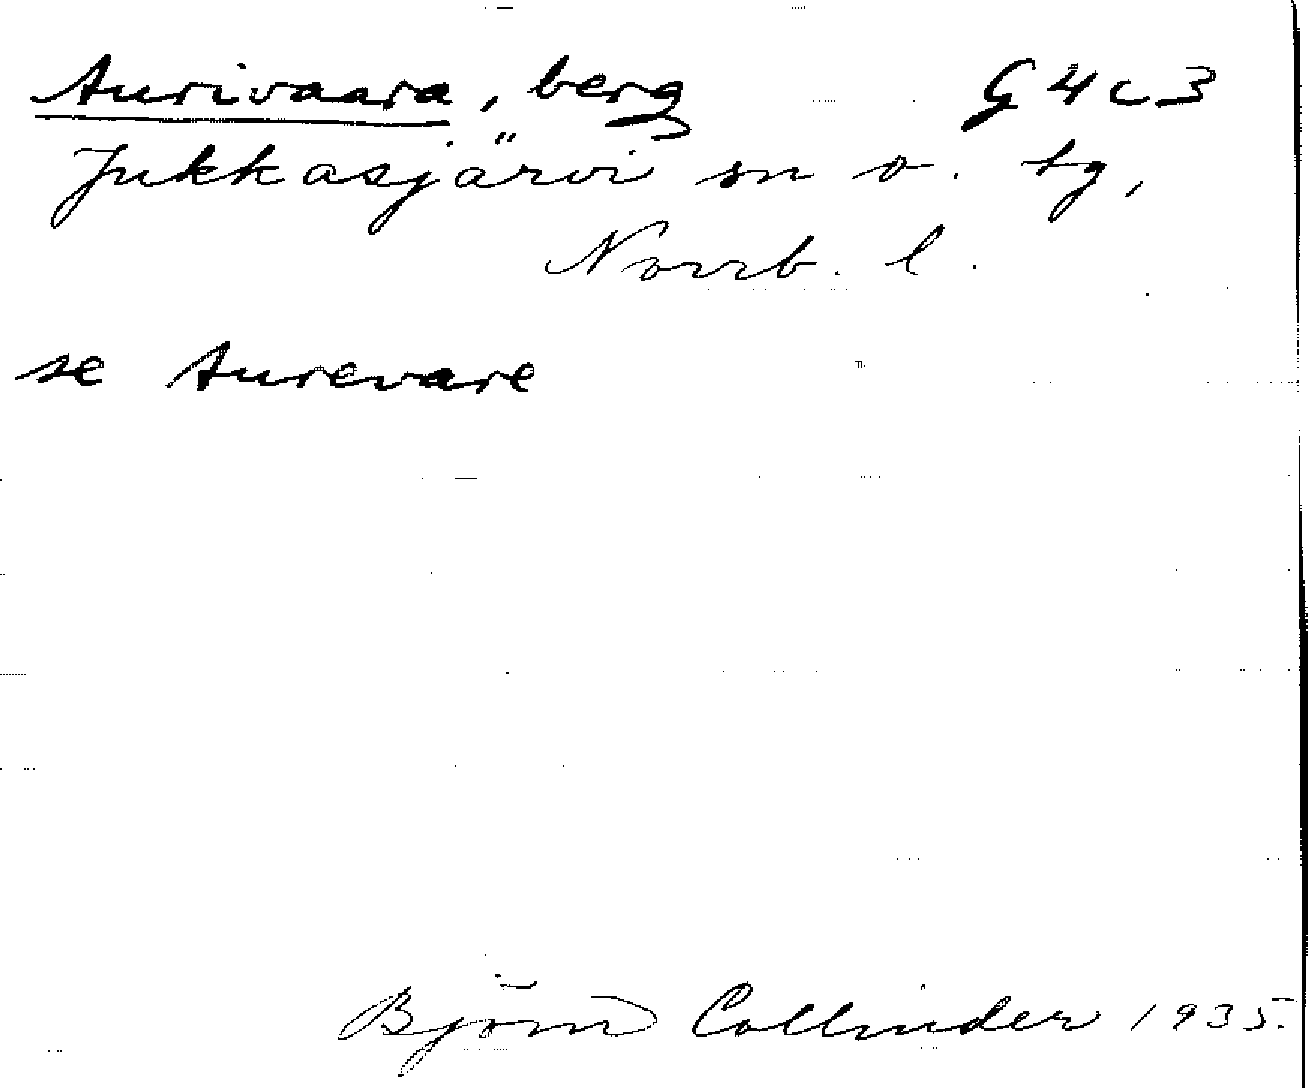 Aurivaara, berg G4c3
Jukkasjärvi sn o. tg,
Norrb. l.
se Aurevare
Björn Collinder 1935.